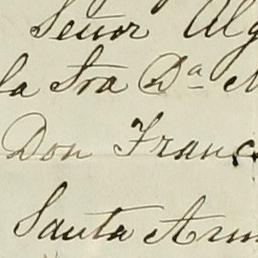 Señor Alg
la Sra Da
Don Franc
Santa Arm